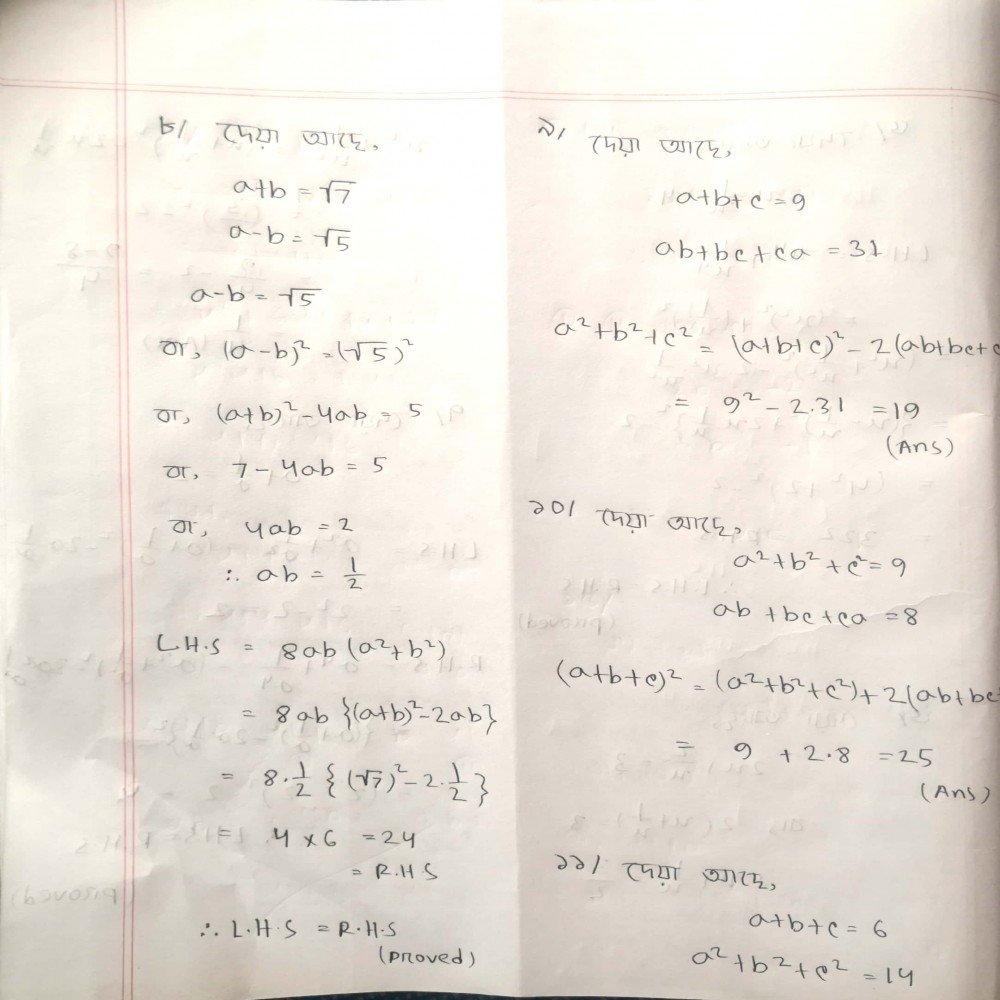 ৮। দেয়া আছে,
a+b = √7
a-b = √5
a-b = √5
বা, (a-b)² = (√5)²
বা, (a+b)² - 4ab = 5
বা, 7 - 4ab = 5
বা, 4ab = 2
∴ ab = 1/2
L.H.S = 8ab (a²+b²)
= 8ab {(a+b)²-2ab}
= 8·1/2 {(√7)² - 2·1/2}
= 4 × 6 = 24
= R.H.S
∴ L.H.S = R.H.S
(proved)
৯। দেয়া আছে,
a+b+c = 9
ab+bc+ca = 31
a²+b²+c² = (a+b+c)² - 2(ab+bc+c
= 9² - 2.31 = 19
(Ans)
১০। দেয়া আছে,
a²+b²+c² = 9
ab+bc+ca = 8
(a+b+c)² = (a²+b²+c²)+2(ab+bc
= 9 + 2·8 = 25
(Ans)
১১। দেয়া আছে,
a+b+c = 6
a²+b²+c² = 14